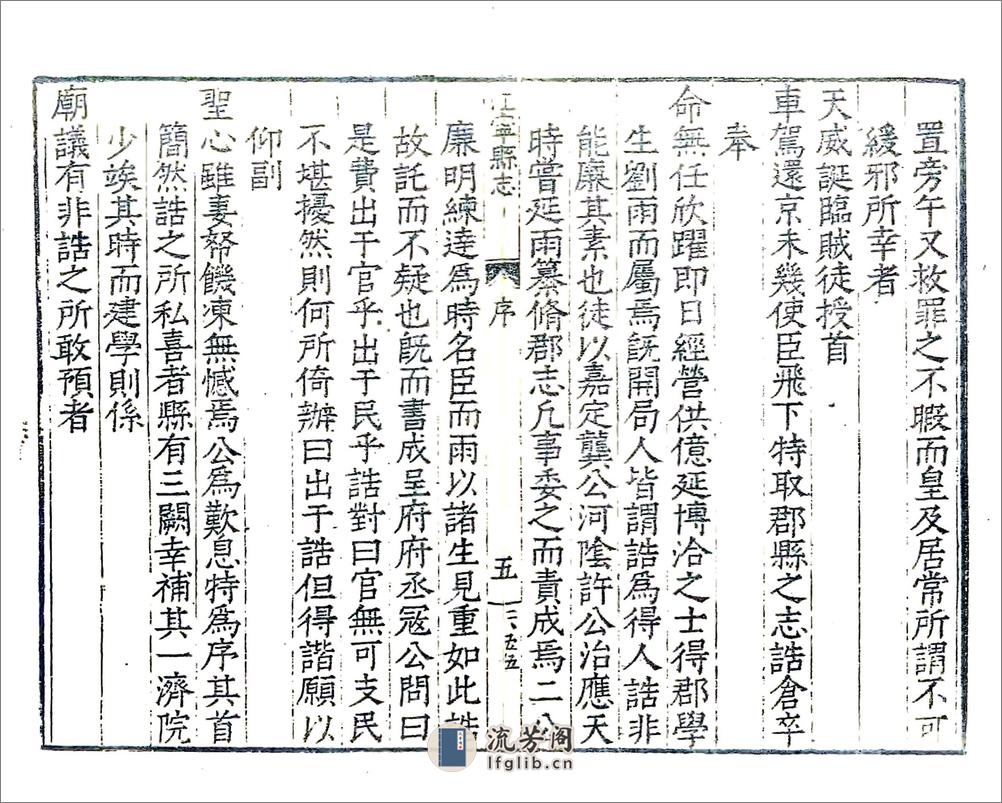 置旁午又救罪之不暇而皇及居常所謂不可
緩邪所幸者
天威誕臨賊徒授首
車駕還京未幾使臣飛下特取郡縣之志誥倉卒
奉
命無任欣躍即日經營供億延博洽之士得郡學
生劉雨而屬焉旣開局人皆謂誥爲得人誥非
能廉其素也徒以嘉定龔公河隂許公治應天
時嘗延雨纂脩郡志凢事委之而責成焉二公
江寧縣志
序
五
三、五五
廉明練達爲時名臣而雨以諸生見重如此誥
故託而不疑也旣而書成呈府府丞冦公問曰
是費出于官乎出于民乎誥對曰官無可支民
不堪擾然則何所倚辦曰出于誥但得諧願以
仰副
聖心雖妻帑饑凍無憾焉公爲歎息特爲序其首
簡然誥之所私喜者縣有三闕幸補其一濟院
少竢其時而建學則係
廟議有非誥之所敢預者
流芳阁
lfglib.cn